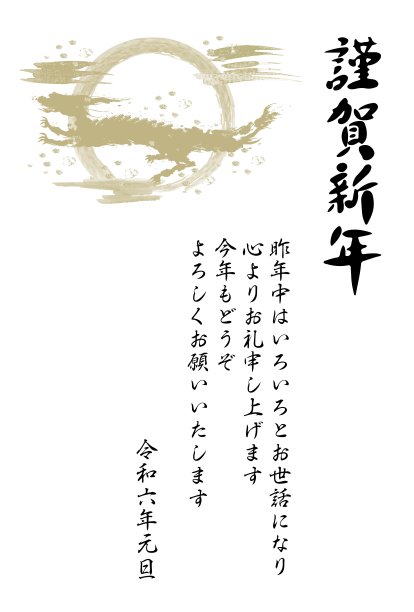 謹賀新年
昨年中はいろいろとお世話になり
心よりお礼申し上げます
今年もどうぞ
よろしくお願いいたします
令和六年元旦